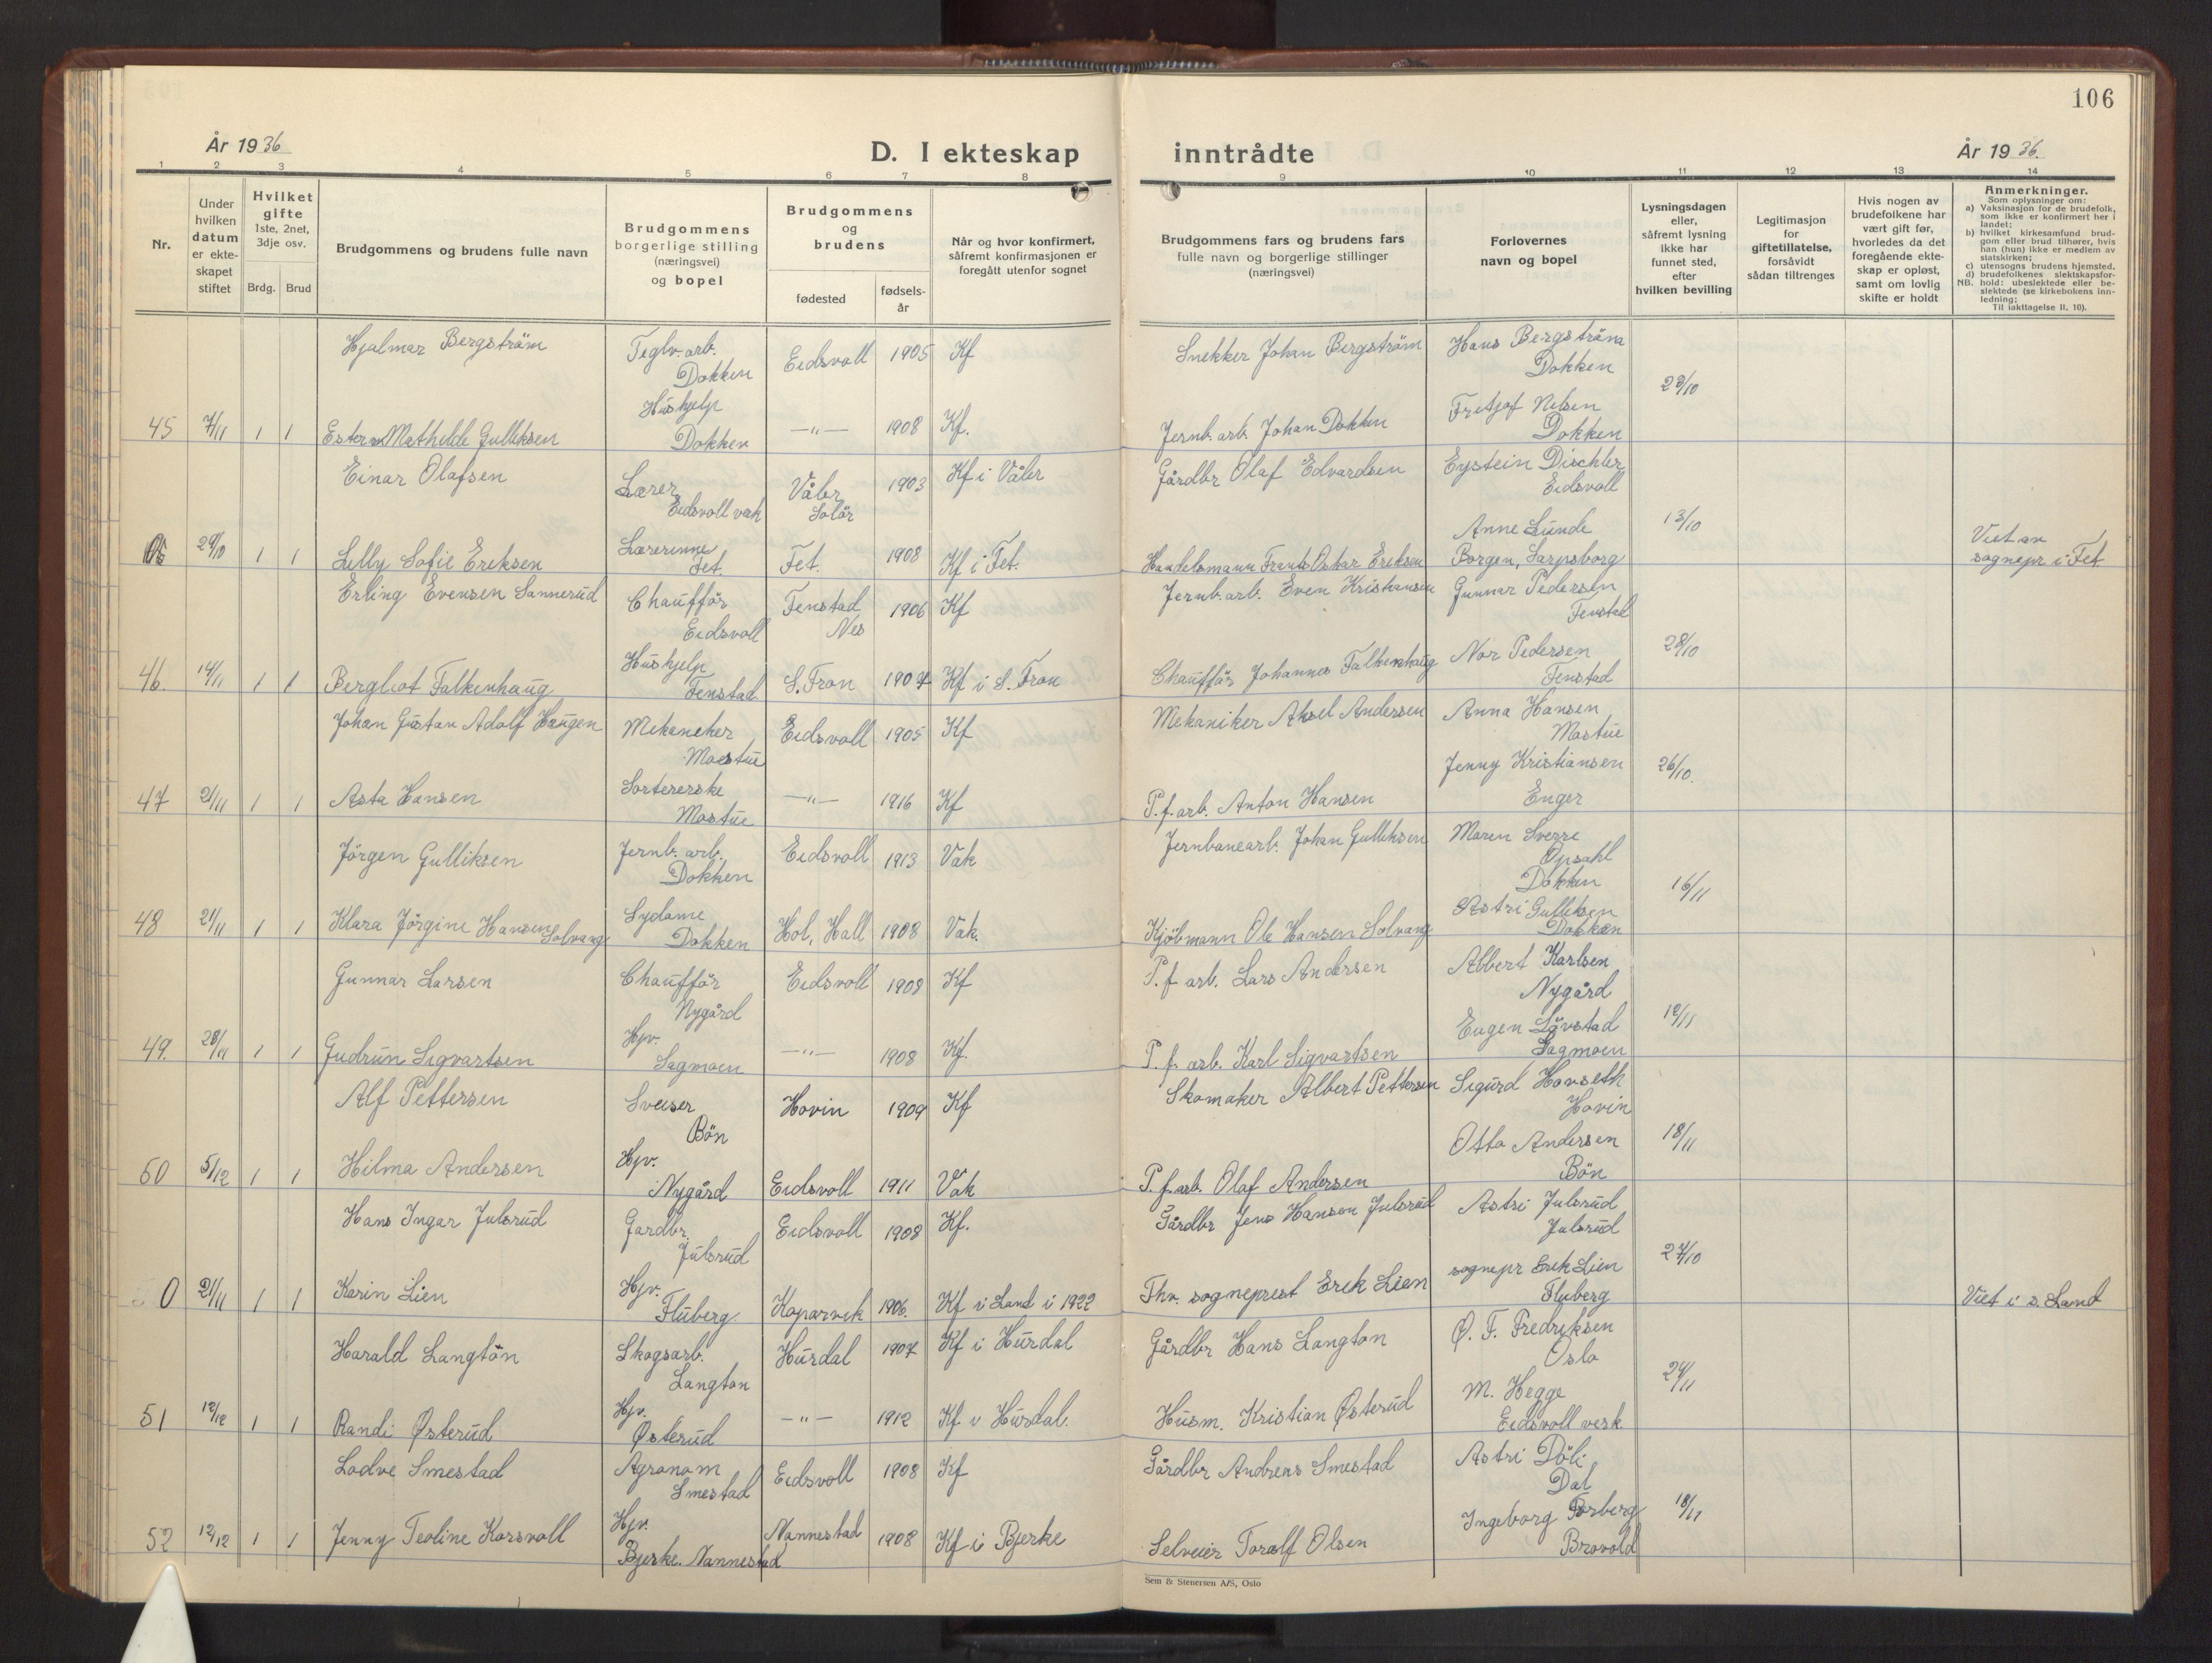 106
År 1936
D. I ekteskap
inntrådte
År 1936.
1 2 3 4 5 6 7 8 9 10 11 12 13 14
Nr.
Under
hvilken
datum
er ekte-
skapet
stiftet
Hvilket
gifte
1ste, 2net,
3dje osv.
Brdg. Brud
Brudgommens og brudens fulle navn
Brudgommens
borgerlige stilling
(næringsvei)
og bopel
Brudgommens
og
brudens
fødested
fødsels-
år
Når og hvor konfirmert,
såfremt konfirmasjonen er
foregått utenfor sognet
Brudgommens fars og brudens fars
fulle navn og borgerlige stillinger
(næringsvei)
Forlovernes
navn og bopel
Lysningsdagen
eller,
såfremt lysning
ikke har
funnet sted,
efter
hvilken bevilling
Legitimasjon
for
giftetillatelse,
forsåvidt
sådan tiltrenges
Hvis nogen av
brudefolkene har
vært gift før,
hvorledes da det
foregående ekte-
skap er opløst,
samt om lovlig
skifte er holdt
Anmerkninger.
Som oplysninger om:
a) Vaksinasjon for de brudefolk,
som ikke er konfirmert her i
landet;
b) hvilket kirkesamfund brud-
gom eller brud tilhører, hvis
han (hun) ikke er medlem av
statskirken;
c) utensogns brudens hjemsted.
d) brudefolkenes slektskapsfor-
NB. hold: ubeslektede eller be-
slektede (se kirkebokens inn-
ledning;
Til iakttagelse II. 10).
Hjalmar Bergström Teglv.arb. Eidsvoll 1905 Kf Snekker Johan Bergström Hans Bergström
Dokken Dokken
23/10
Hushjelp Fritjof Nilsen
45 7/11 1 1 Ester Mathilde Gulliksen Dokken —"— 1908 Kf. Jernb.arb. Johan Dokken Dokken
Einar Olafsen Lærer Våler 1903 Kf i Våler Gårdbr Olaf Edvardsen Eystein Dischler
Eidsvoll verk Solör Eidsvoll
Anne Lunde 13/10
29/10 1 1 Lilly Sofie Eriksen Lærerinne Fet. 1908 Kf i Fet. Handelsmann Frants Oskar Eriksen Borgen, Sarpsborg Viet av
Fet. sognepr i Fet
Erling Evensen Sannerud Chaufför Fenstad 1906 Kf Jernb.arb. Even Kristiansen Gunnar Pedersen
Eidsvoll Nes Fenstad
Hushjelp Nor Pedersen 28/10
46. 14/11 1 1 Bergliot Falkenhaug Fenstad S. Fron 1904 Kf i S. Fron Chaufför Johannes Falkenhaug Fenstad
Johan Gustav Adolf Haugen Mekaniker Eidsvoll 1905 Kf Mekaniker Aksel Andersen Anna Hansen
Mostue Mostue
Jenny Kristiansen 26/10.
47 21/11 1 1 Asta Hansen Sortererske —"— 1916 Kf P.f.arb. Anton Hansen Enger
Mostue
Jörgen Gulliksen Jernb.arb. Eidsvoll 1913 Vak Jernbanearb. Johan Gulliksen Maren Sverre
Dokken Opsahl
Dokken 16/11
48 21/11 1 1 Klara Jörgine Hansen Solvang Sydame Hol, Hall 1908 Vak. Kjöbmann Ole Hansen Solvang Astri Gulliksen
Dokken Dokken
Gunnar Larsen Chaufför Eidsvoll 1908 Kf P.f arb. Lars Andersen Albert Karlsen
Nygård Nygård
Hjv. Eugen Lövstad 12/11
49. 28/11 1 1 Gudrun Sigvartsen Sagmoen —"— 1908 Kf. P.f. arb. Karl Sigvartsen Sagmoen
Alf Pettersen Sveiser Hovin 1909 Kf Skomaker Albert Pettersen Sigurd Hovseth
Bön Hovin
Hjv. Otto Andersen 18/11
50 5/12 1 1 Hilma Andersen Nygård Eidsvoll 1911 Vak P.f.arb. Olaf Andersen Bön
Hans Ingar Julsrud Gardbr. Eidsvoll 1908 Kf. Gårdbr Jens Hansen Julsrud Astri Julsrud
Julsrud Julsrud
27/10
0 21/11 1 1 Karin Lien Hjv. Koparvik 1906. Kf i Land i 1922 Fhv. sogneprest Erik Lien sognepr Erik Lien Viet i S. Land
Fluberg Fluberg
Harald Langton Skogsarb. Hurdal 1907 Kf i Hurdal Gårdbr Hans Langton Ø. F. Fredriksen
Langton Oslo
Hjv. M. Hegge 24/11
51 12/12 1 1 Randi Østerud Østerud —"— 1912 Kf i Hurdal. Husm. Kristian Østerud Eidsvoll verk
Lodve Smestad Agronom Eidsvoll 1908 Kf Gårdbr Andreas Smestad Astri Döli
Smestad Dal
Hjv. Ingeborg Forberg 18/11
52 12/12 1 1 Jenny Teoline Korsvoll Bjerke. Nannestad Nannestad 1908 Kf i Bjerke Selveier Toralf Olsen Brovold
Sem & Stenersen A/S, Oslo